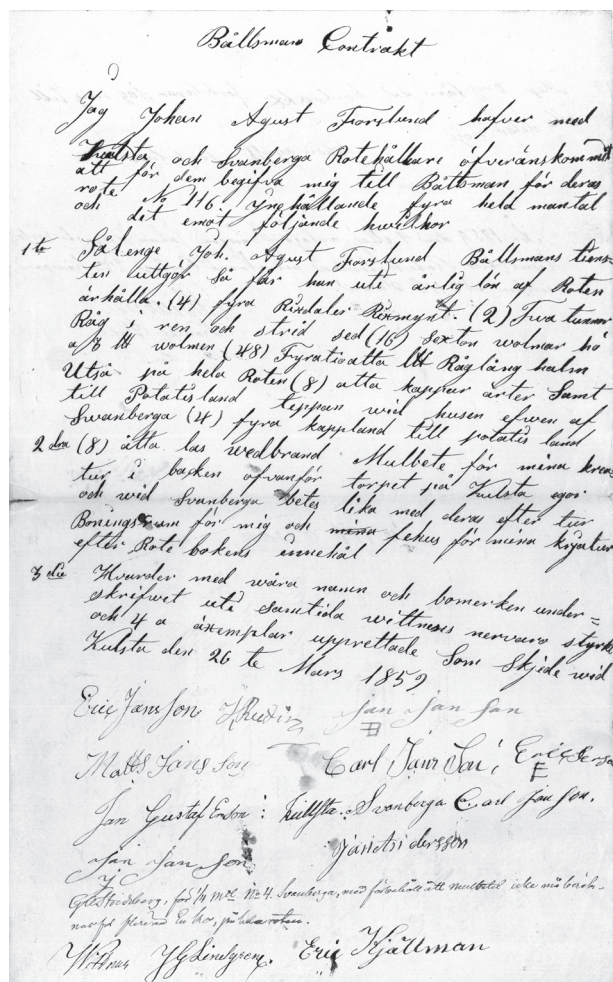 Båttsmans Contrakt
Jag Johan Agust Forslund hafver med
Kulsta och Svanberga Rotehållare öfveränskommit
att för dem begifva mig till Båttsman för deras
rote No 116. Ynehållande fyra held mantal
och det emot följande hwilkor
1te Sålenge Joh. August Forslund Båttsmans tiens-
ten uttgör så får han ute årlig lön af Roten
århålla. (4) fyra Rixdaler Rixmynt. (2) Twa tunnor
Råg i ren och strid sed (16) Sexton wolmar hö
a 8 ltt wolmen (48) Fyratioatta ltt Råglång halm
Utså på hela Roten (8) åtta kappar årter Samt
till Potatisland teppan wid husen efwen af
Swanberga (4) fyra kappland till potatis land
2dra (8) åtta las wedbrand Mulbete för mina krea-
tur i backen ofvanför torpet på Kulsta egor
och wid Svanberga betes lika med deras efter tur
Boningsrum för mig och mina fehus för mina kryatur
efter Rote bokens innehål
3die Hvarder med wåra namn och bomerken under=
skrifwet ute samtida wittnens nerwaro styrkt
och 4 a äxemplar upprettade Som skjede wid
Kulsta den 26 te Mars 1859
Eric Jans Son Jan Jan Son
Matts Jans Son Carl Jans Eric
Jan Gustaf Erson : Kullsta. Svanberga Carl Jan Son.
Jan Jan Son
Stridsberg, för 1/4 mtl No 4. Svanberga, med förbehåll att mulbetet icke må beräk-
nas för flera än En ko, på hela roten.
Wittnar J G Lindgren. Eric Kjällman